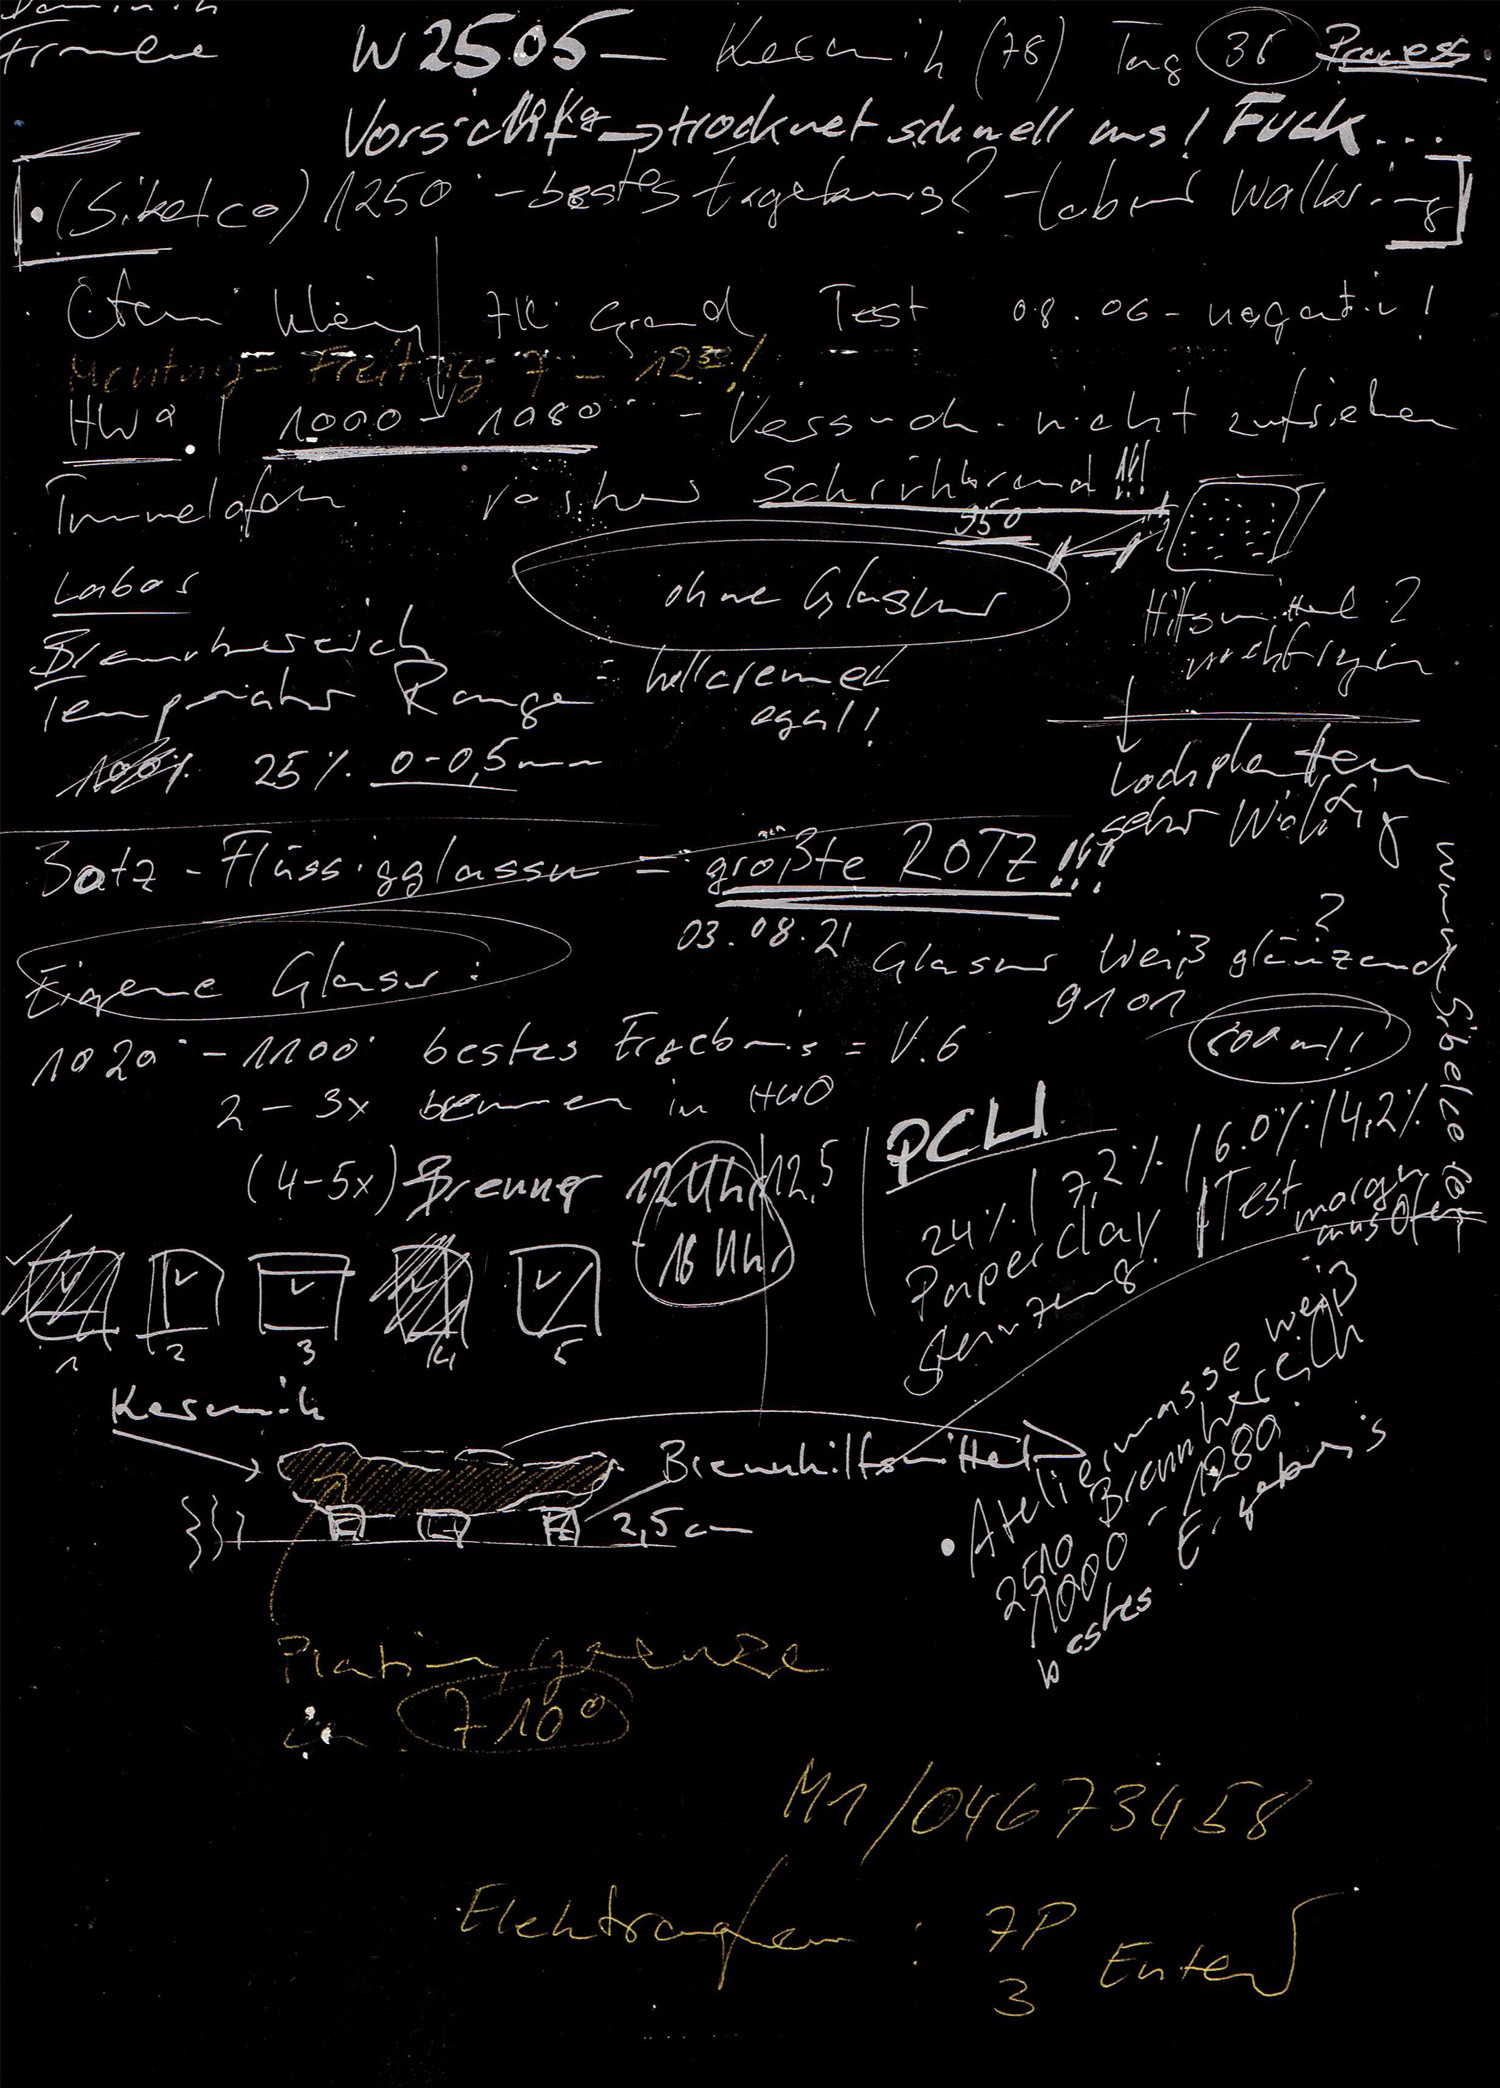 Dominik
Franke
W2505 – Keramik (78) Tag 36 Process
10 kg
Vorsicht → trocknet schnell aus! Fuck...
• (Sibelco) 1250° - bestes Ergebnis? - Labor
7K: Grad Test 08.06 - negativ!
Montag - Freitag 7 - 12³⁰!
HWO. | 1000 - 1080° - Versuch nicht zufrieden
Tunnelofen Schrühbrand!!!
950
ohne Glasur
Labor
Brennbereich
Temperatur Range
= hellcreme
egal!
Hilfsmittel?
nachfragen
100% 25% 0-0,5mm
Lochplatten
sehr Wichtig
Botz - Flüssigglasur = größte ROTZ!!!
03.08.21
?
Glasur Weiß glänzend
9101
800ml!
Eigene Glasur:
1020° - 1100° bestes Ergebnis = V.6
2 - 3x brennen in HWO
(4-5x) Brenner 12 Uhr 12,5
- 16 Uhr
PCLI
24% | 7,2% | 6.0% | 4,2%
Paperclay | Test morgen
Steinzeug aus Ofen
www.Sibelco.com
1 2 3 4 5
Keramik
Brennhilfsmittel
2,5 cm
• Ateliermasse weiß
2510 Brennbereich
1000 - 1280°
bestes Ergebnis
Platingrenze
ca 710°
M1/04673458
Elektroofen : 7P
3 Enter